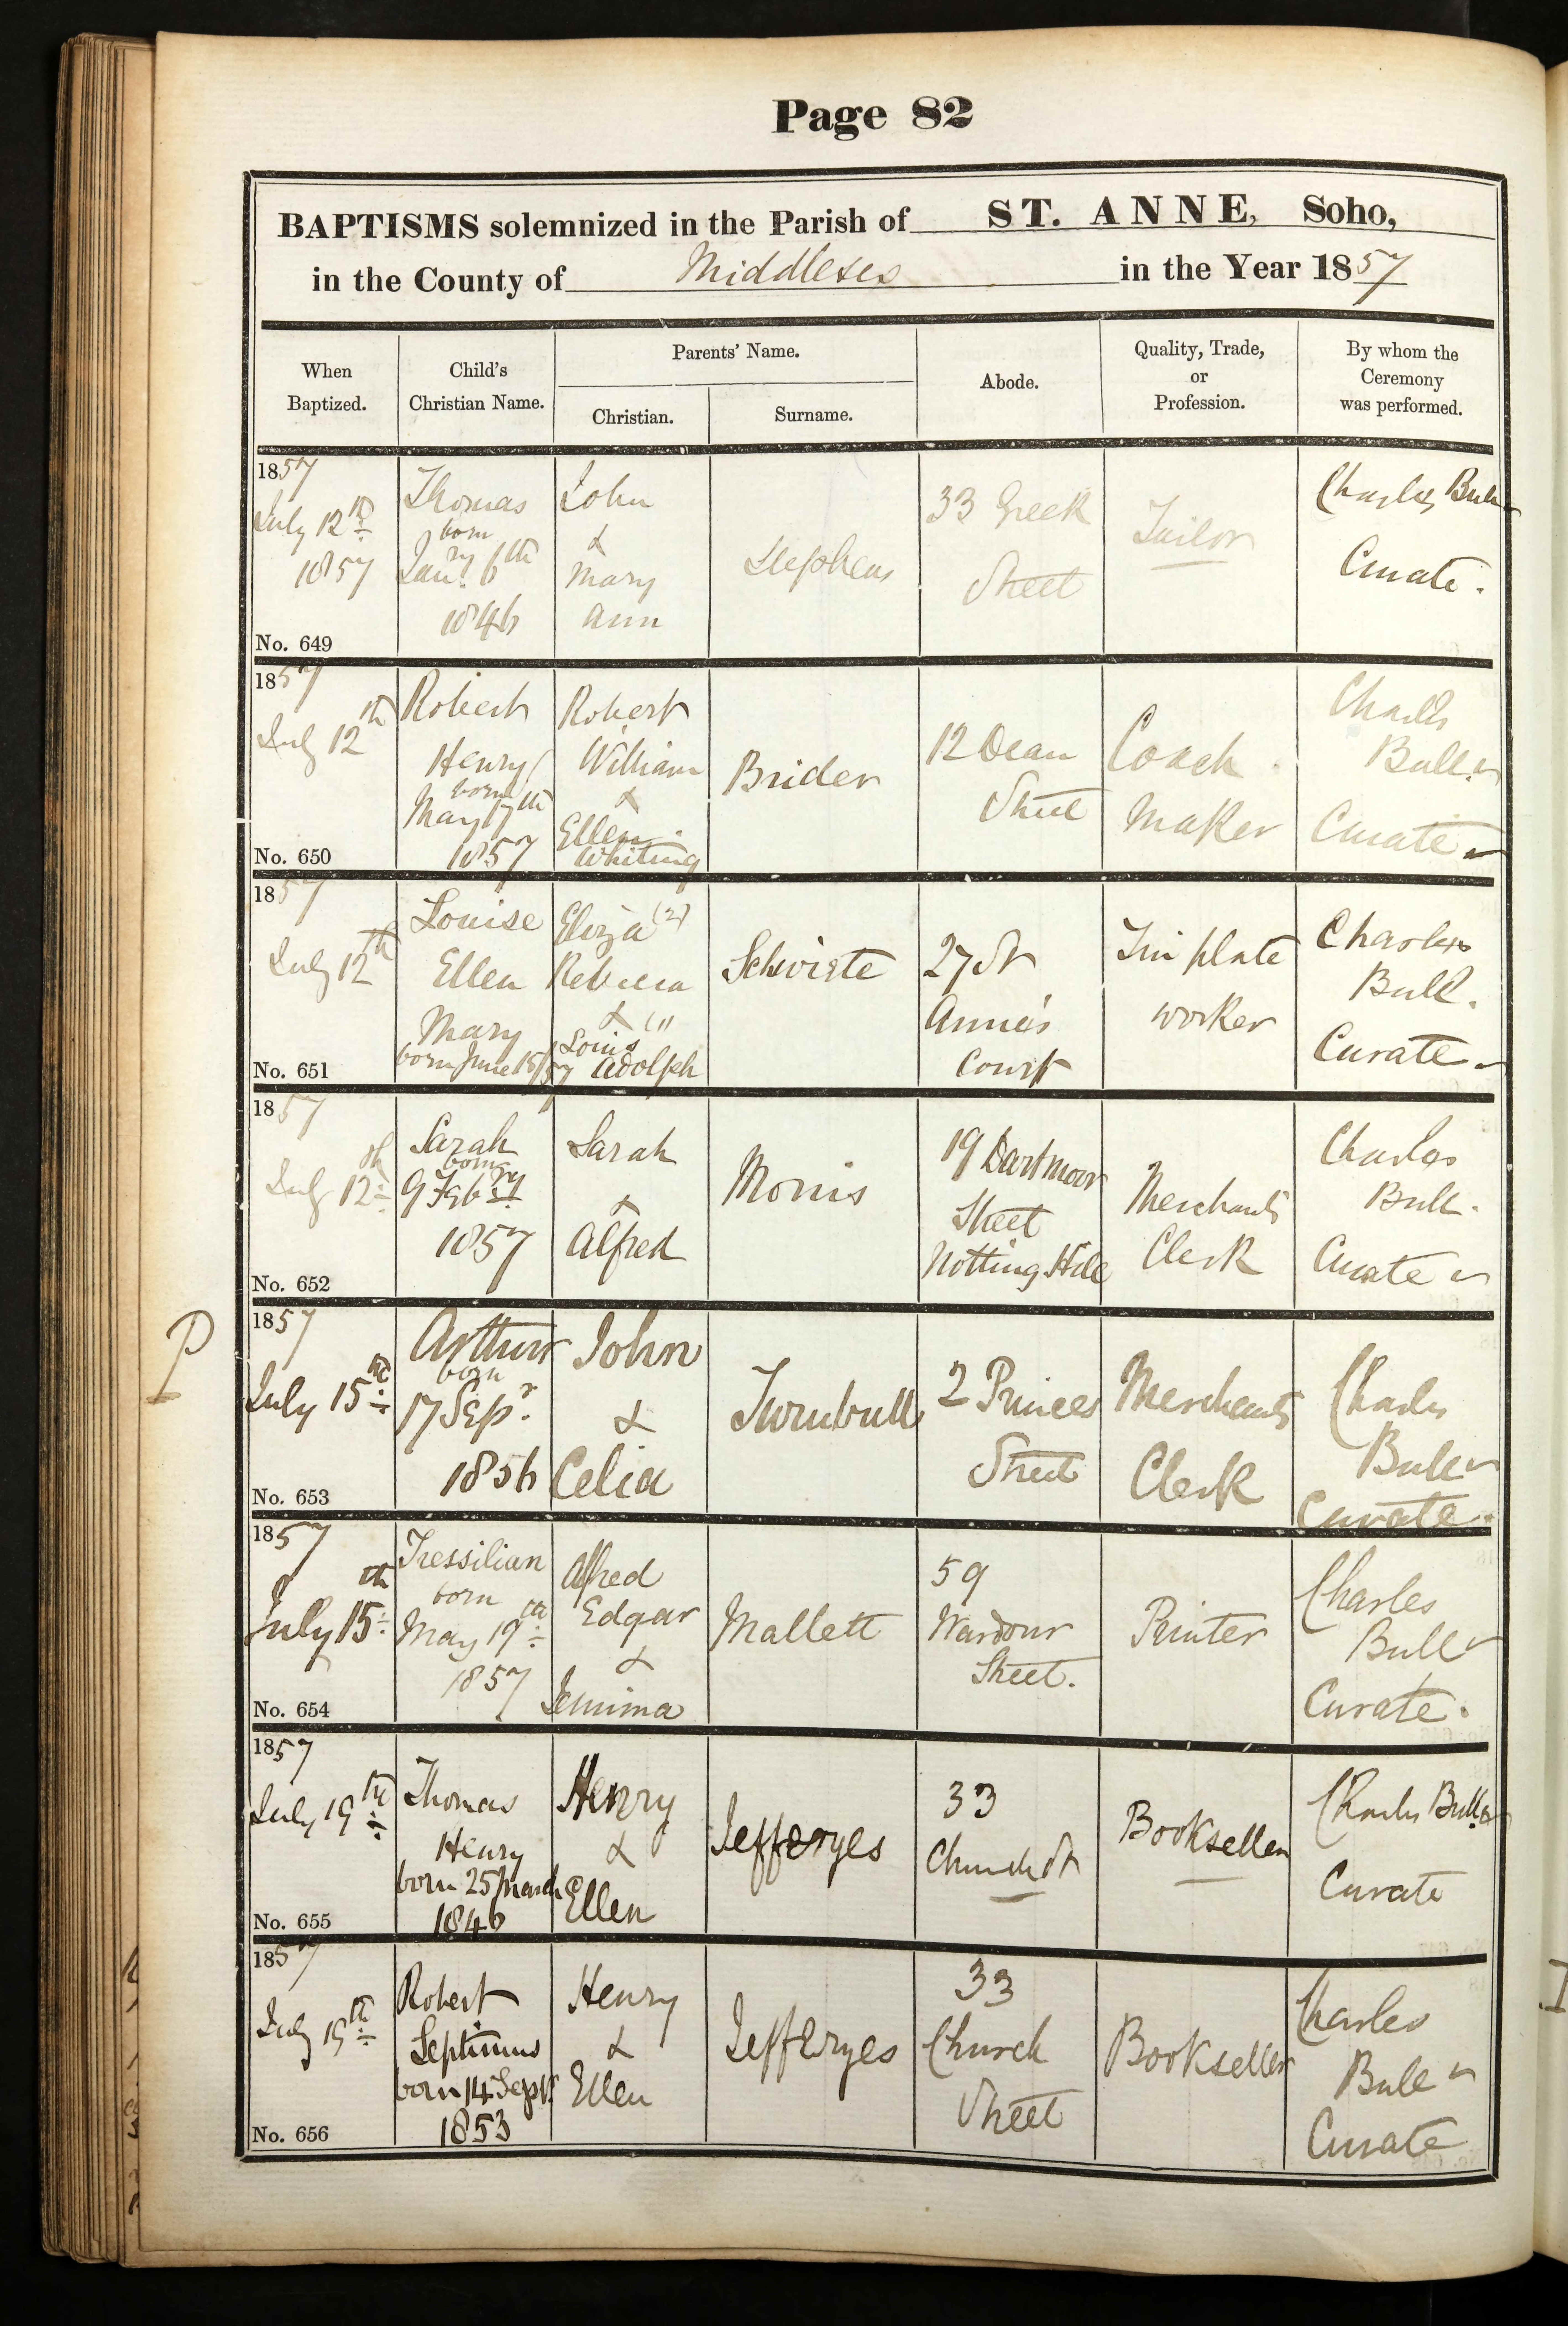 Page 82
BAPTISMS solemnized in the Parish of ST. ANNE, Soho,
in the County of Middlesex in the Year 1857
When Baptized.
Child's Christian Name.
Parents' Name.
Christian.
Surname.
Abode.
Quality, Trade, or Profession.
By whom the Ceremony was performed.
1857
July 12th
1857
No. 649
Thomas
born
Jany. 6th
1846
John
&
Mary
Ann
Stephens
33 Greek
Street
Tailor
Charles Bull
Curate.
1857
July 12th
No. 650
Robert
Henry
born
May 17th
1857
Robert
William
&
Ellen
Whiting
Brider
12 Dean
Street
Coach
Maker
Charles
Bull
Curate
1857
July 12th
No. 651
Louise
Ellen
Mary
born June 15/57
Eliza (2)
Rebecca
& (1)
Louis
Adolph
27 St
Anne's
Court
Tin plate
worker
Charles
Bull.
Curate
1857
July 12th
No. 652
Sarah
born
9 Febry
1857
Sarah
&
Alfred
Morris
19 Dartmoor
Street
Notting Hill
Merchants
Clerk
Charles
Bull.
Curate
P
1857
July 15th
No. 653
Arthur
born
17 Sepr.
1856
John
&
Celia
Turnbull
2 Princes
Street
Merchants
Clerk
Charles
Bull
Curate.
1857
July 15th
No. 654
Tressilian
born
May 19th
1857
Alfred
Edgar
&
Jemima
Mallett
59
Wardour
Street.
Charles
Bull
Curate.
1857
July 19th
No. 655
Thomas
Henry
born 25 March
1846
Henry
&
Ellen
Jefferyes
33
Church St
Bookseller
Charles Bull
Curate
1857
July 19th
No. 656
Robert
Septimus
born 14 Sept
1853
Henry
&
Ellen
Jefferyes
33
Church
Street
Bookseller
Charles
Bull
Curate